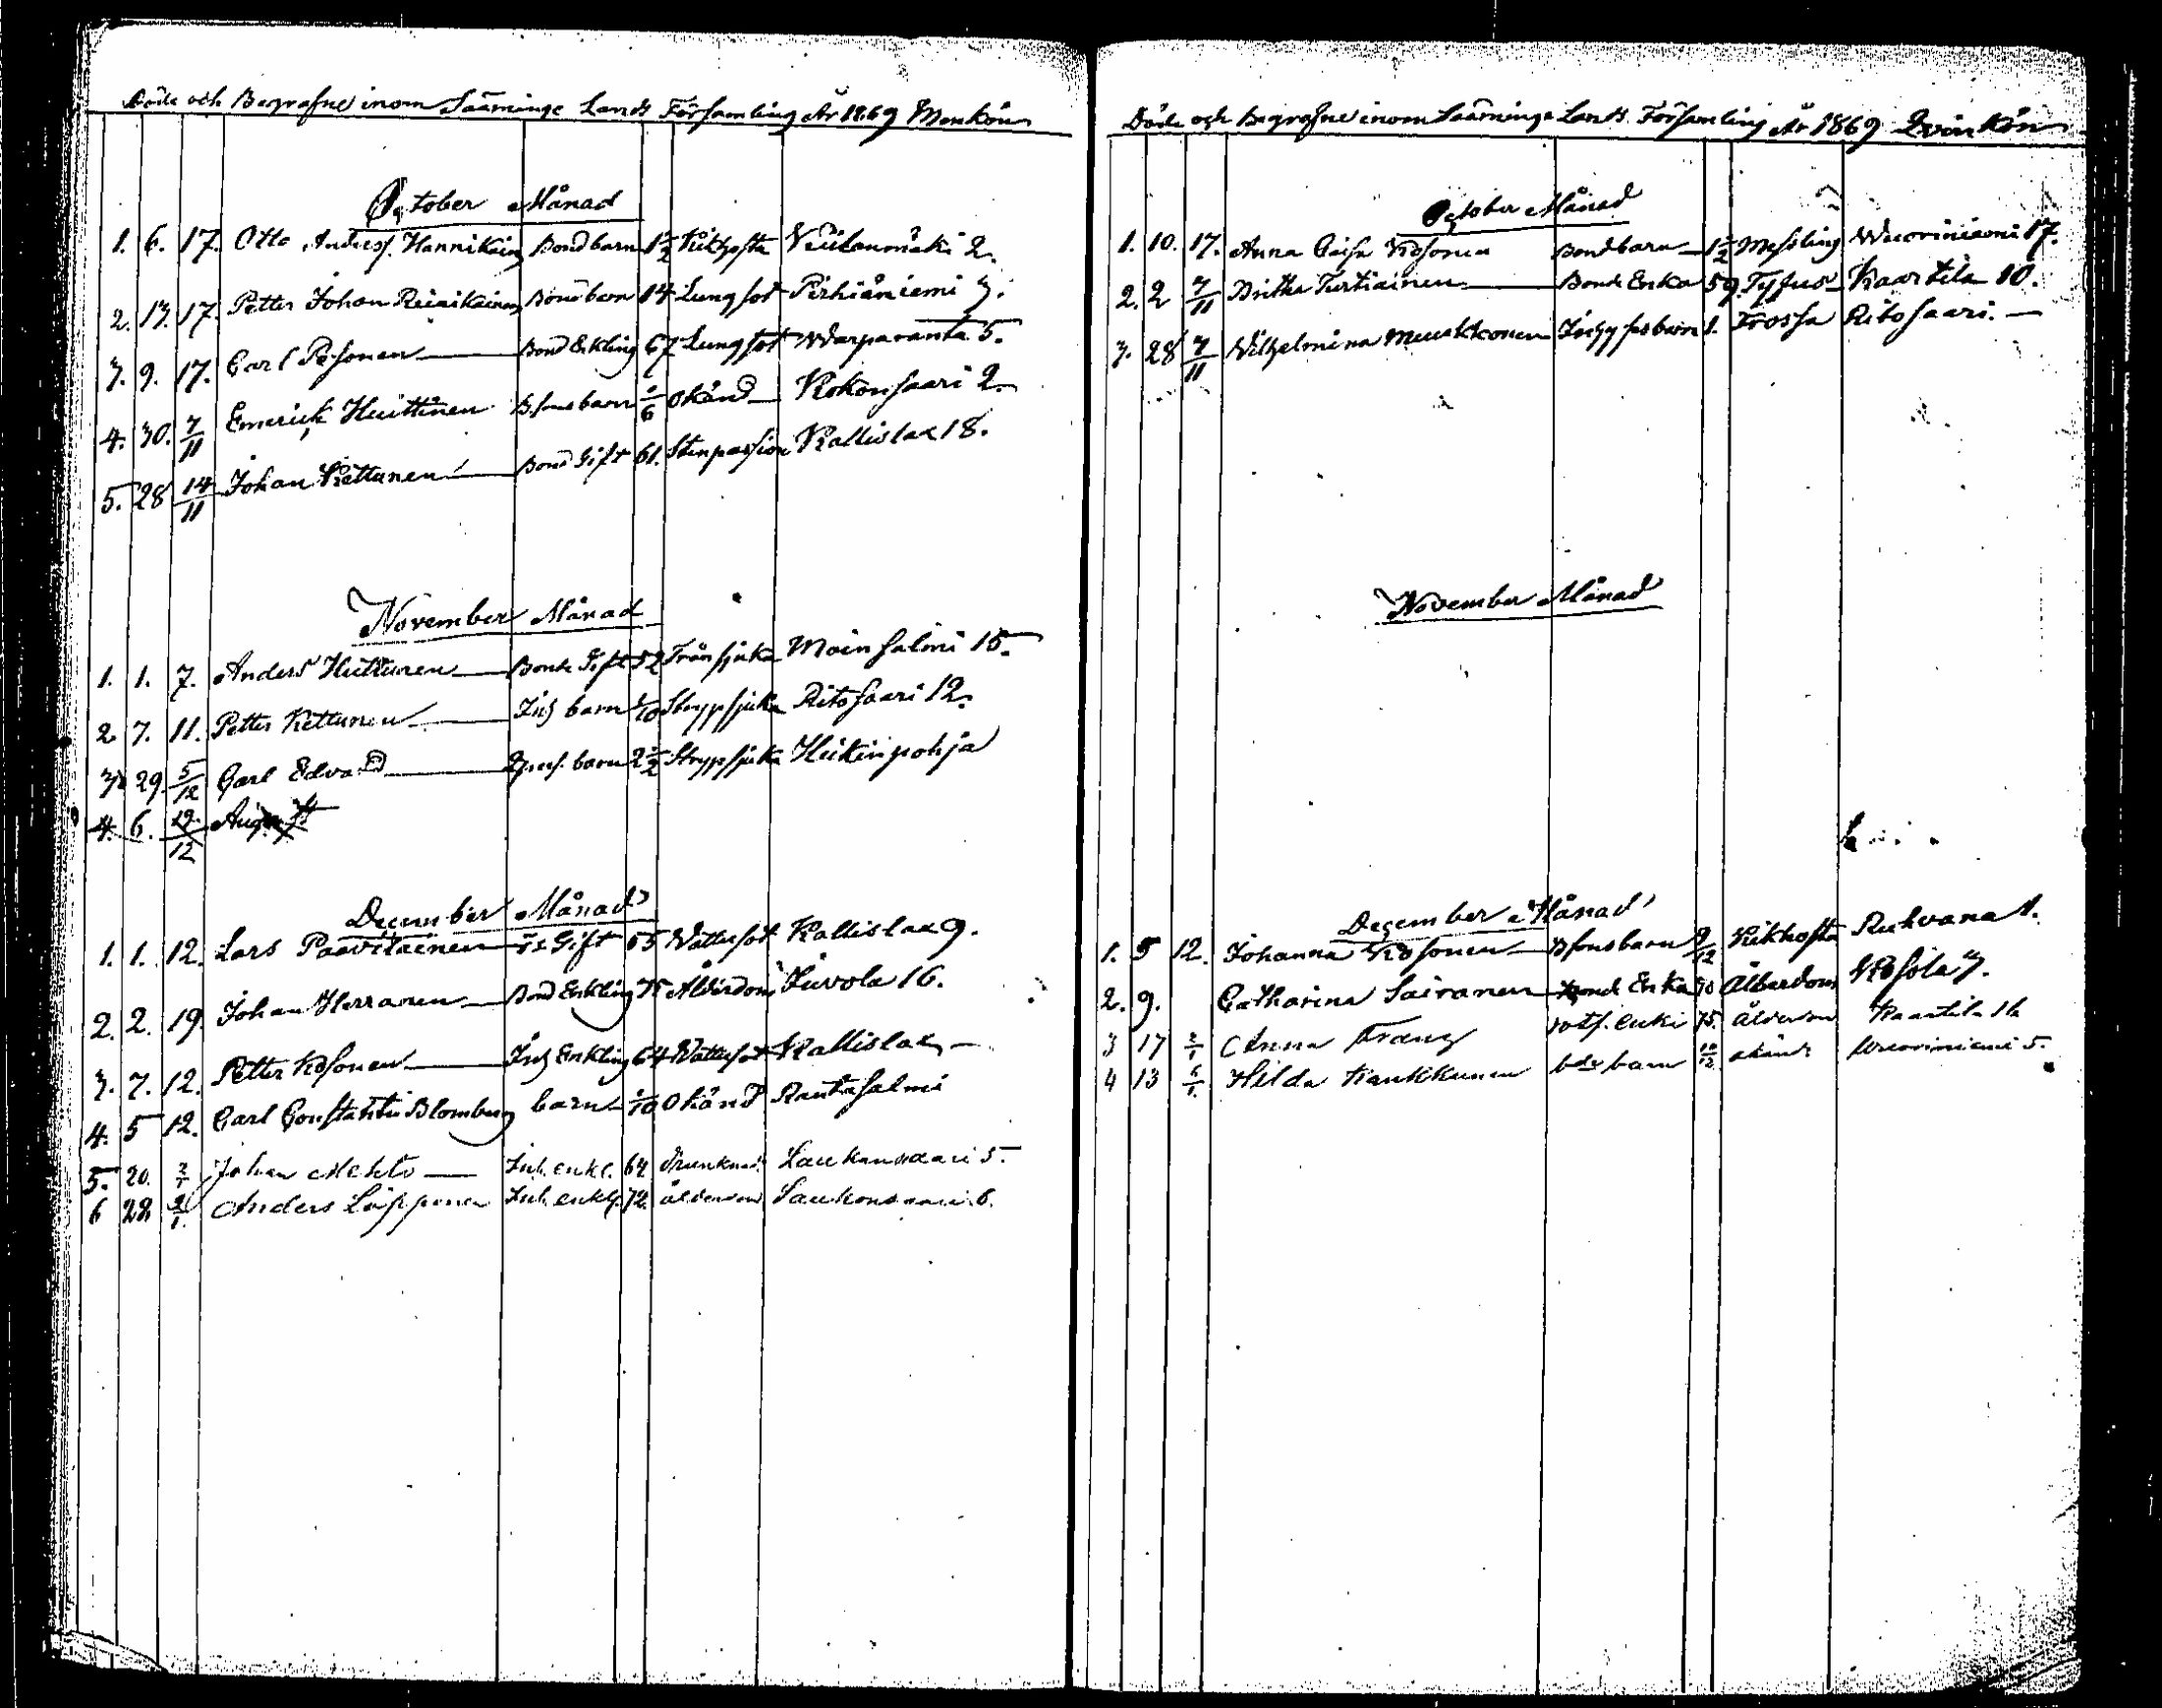 Döde och Begrafne inom Sääminge Lands Församling År 1869 Mankön
October Månad
1. 6. 17. Otto Anders. Hannikain Bond barn 1 1/2 Kikhosta 2.
2. 13. 17. Petter Johan Reinikainen Bond barn 14 Lungsot Pirhiäniemi 3.
3. 9. 17. Carl Pesonen Bond Enkling 67 Lungsot Warparanta 5.
4. 30. 7/11 Emerick Huittinen B. sons barn 1/6 Okänd Kokonsaari 2.
5. 28 14/11 Johan Kettunen Bond Gift 61. Stenpassion Kallislax 18.
November Månad
1. 1. 7. Anders Huttunen Bonde Gift 52 Tränsjuka Moinsalmi 15.
2. 7. 11. Petter Kettunen Inh barn 1/10 Strypsjuka Ritosaari 12.
3. 29. 5/12 Carl Edvard barn 2 1/2 Strypsjuka Heikinpohja
4. 6. 19/12 August
December Månad
1. 1. 12. Lars Paavilainen Gift 55 Vattusot Kallislax 9.
2. 2. 19. Johan Herranen Bond Enkling 75 Ålderdom Juvola 16.
3. 7. 12. Petter Kosonen Inh Enkling 64 Vattusot Kallislax
4. 5 12. Carl Constantin Blomberg barn 1/10 Okänd Rantasalmi
5. 20. 2/1 Johan Mehto Inh. enkl. 64 drunknad Laukansaari 5.
6 28 2/1. Anders Läpponen Inh. enklg. 72. ålderdom Laukansaari 6.
Döde och Begrafne inom Sääminge Lands Församling År 1869 Qvinkön
October Månad
1. 10. 17. Anna Caisa Kosonen Bondbarn 1 1/2 Messling Wuoriniemi 17.
2. 2 7/11 Britha Turtiainen Bonde Enka 59. Tyfus Kaartila 10.
3. 28 7/11 Wilhelmina Muukkonen 1. Frossa Ritosaari.
November Månad
December Månad
1. 5 12. Johanna Kosonen B sons barn 9/12 Kikhosta Ruhvana 1.
2. 9. Catharina Sairanen Bond Enka 70 Ålderdom Kosola 3.
3 17 2/1 Anna Frang enka 75. ålderdom Kaartila 16
4 13 6/1. Hilda Kaukkunen bde barn 10/12 okänd Wuoriniemi 5.